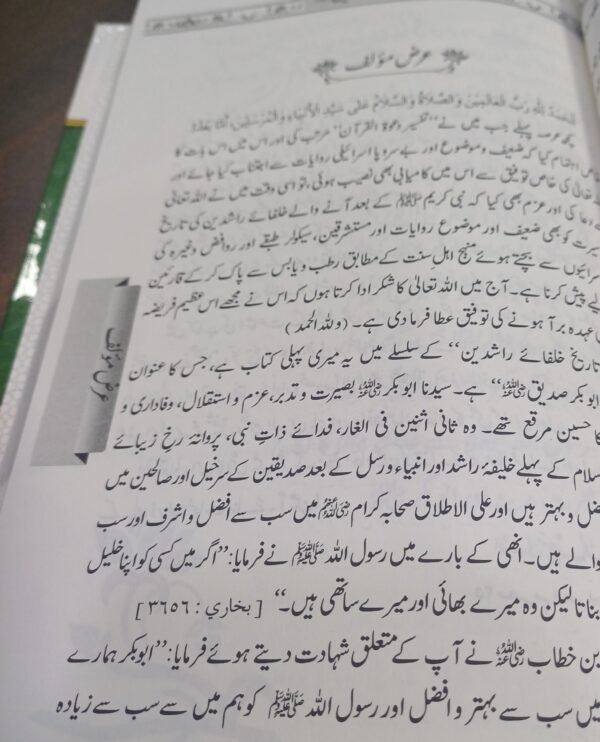 عرض مؤلف
الْحَمْدُ لِلّٰهِ رَبِّ الْعَالَمِيْنَ وَالصَّلَاةُ وَالسَّلَامُ عَلٰى سَيِّدِ الْأَنْبِيَاءِ وَالْمُرْسَلِيْنَ، أَمَّا بَعْدُ!
کچھ عرصہ پہلے جب میں نے ”تفسیر دعوۃ القرآن“ مرتب کی اور اس میں اس بات کا
اہتمام کیا کہ ضعیف و موضوع اور بے سروپا اسرائیلی روایات سے اجتناب کیا جائے اور
تعالیٰ کی خاص توفیق سے اس میں کامیابی بھی نصیب ہوئی، تو اسی وقت میں نے اللہ تعالیٰ
دعا کی اور عزم بھی کیا کہ نبی کریم ﷺ کے بعد آنے والے خلفائے راشدین کی تاریخ
سیرت کو بھی ضعیف اور موضوع روایات اور مستشرقین، سیکولر طبقے اور روافض وغیرہ کی
سے بچتے ہوئے منہج اہل سنت کے مطابق رطب و یابس سے پاک کر کے قارئین
پیش کرنا ہے۔ آج میں اللہ تعالیٰ کا شکر ادا کرتا ہوں کہ اس نے مجھے اس عظیم فریضہ
عہدہ برآ ہونے کی توفیق عطا فرما دی ہے۔ (وللہ الحمد)
تاریخ خلفائے راشدین“ کے سلسلے میں یہ میری پہلی کتاب ہے، جس کا عنوان
ابوبکر صدیق رضی اللہ عنہ“ ہے۔ سیدنا ابوبکر رضی اللہ عنہ بصیرت و تدبر، عزم و استقلال، وفاداری و
کا حسین مرقع تھے۔ وہ ثانی اثنین فی الغار، فدائے ذاتِ نبی، پروانہ رخِ زیبائے
سلام کے پہلے خلیفۂ راشد اور انبیاء ورسل کے بعد صدیقین کے سرخیل اور صالحین میں
و بہتر ہیں اور علی الاطلاق صحابہ کرام رضی اللہ عنہم میں سب سے افضل و اشرف اور سب
والے ہیں۔ انھی کے بارے میں رسول اللہ ﷺ نے فرمایا: ”اگر میں کسی کو اپنا خلیل
بناتا لیکن وہ میرے بھائی اور میرے ساتھی ہیں۔“ [ بخاري : ٣٦٥٦ ]
بن خطاب رضی اللہ عنہ نے آپ کے متعلق شہادت دیتے ہوئے فرمایا: ”ابوبکر ہمارے
میں سب سے بہتر و افضل اور رسول اللہ ﷺ کو ہم میں سے سب سے زیادہ
عرض مؤلف